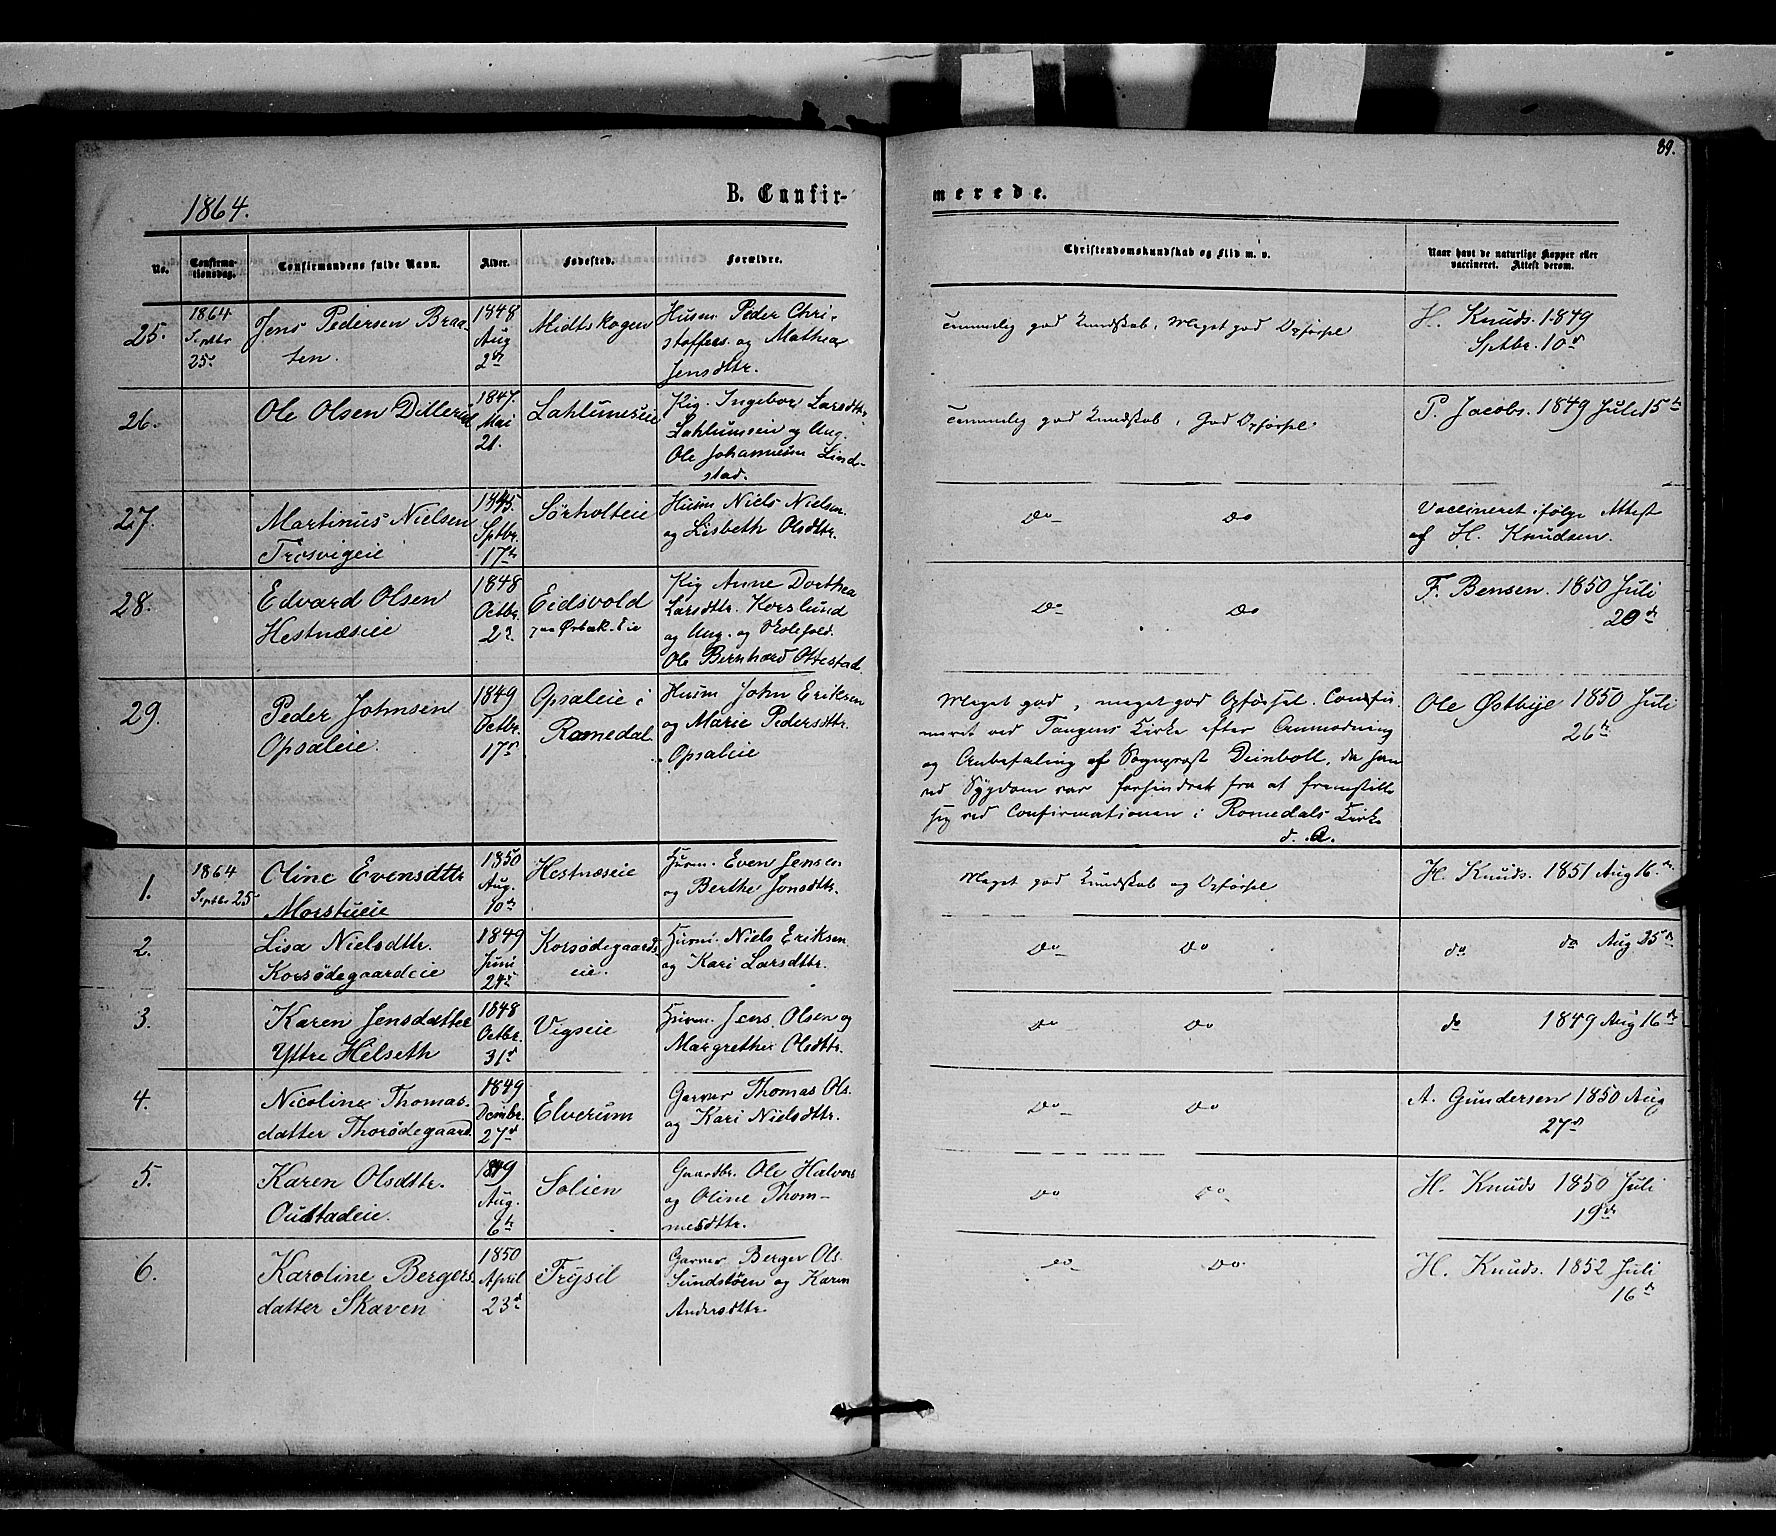 89.
1864.
B. Confir-
merede.
No.
Confirma-
tionsdag.
Confirmandens fulde Navn.
Alder.
Fødested.
Forældre.
Christendomskundskab og Flid m. v.
Naar havt de naturlige Kopper eller
vaccineret. Attest derom.
25.
1864
Septbr
25d
Jens Pedersen Braa-
ten.
1848
Aug
2d
Midtskogen
Husm. Peder Chri-
stoffers. og Mathea
Jensdttr.
Temmelig god Kundskab, Meget god Opførsel
H. Knuds. 1849
Sptbr. 10d
26.
Ole Olsen Dillerud
1847.
Mai
21.
Lahlumseie
Pig. Ingebor Larsdttr.
Ung.
Ole Johannesen Lind-
stad.
Temmelig god Kundskab, God Opførsel.
P. Jacobs. 1849 Juli 15de
27.
Martinus Nielsen
Trosvigeie
1845.
Sptbr.
17de
Sørholteie
Husm Niels Nielsen
og Lisbeth Olsdttr.
Do Do
Vaccineret ifølge Attest
af H. Knudsen.
28.
Edvard Olsen
Hestnæseie
1848
Octbr.
22.
Eidsvold
Pig Anne Dorthea
Larsdttr. Korslund
og Ung. og
Ole Bernhard Ottestad
Do Do
F. Bensen. 1850 Juli
20d
29.
Peder Johnsen
Opsaleie.
1849
Octbr.
17d
Opsaleie i
Romedal.
Husm John Eriksen
og Marie Pedersdttr.
Opsaleie
Meget god, meget god Opførsel. Confir-
meret ved Tangens Kirke efter Anmodning
og Anbefaling af Sognprest Deinboll, da han
ved Sygdom var forhindret fra at fremstille
sig ved Confirmationen i Romedals Kirke
d. A.
Ole Østbye 1850 Juli
26de
1.
1864
Septbr 25
Oline Evensdttr
Morstueie
1850
Aug.
10d
Hestnæseie
Husm. Even Jensen
og Berthe Jonsdttr.
Meget god Kundskab og Opførsel
H. Knuds. 1851 Aug 16.de
2.
Lisa Nielsdttr.
Korsødegaardeie
1849
Juni
24d
Korsødegaards
eie.
Husm. Niels Eriksen
og Kari Larsdttr.
Do Do
do do Aug 25d
3.
Karen Jensdatter
Yttre Helseth
1848
Octbr.
31d
Vigseie
Husm. Jens Olsen og
Margrethe Olsdttr.
Do Do
do 1849 Aug 16d
4.
Nicoline Thomas-
datter Thorødegaard
1849
Dcmbr.
27d
Elverum
Garver Thomas Ols.
og Kari Nielsdttr.
Do Do
A. Gundersen 1850 Aug
27d
5.
Karen Olsdttr.
Oustadeie.
1849
Aug.
6te
Solien
Gaardbr. Ole Halvors
og Oline Thom-
mesdttr.
Do Do
H. Knuds 1850 Juli
19de
6.
Karoline Bergers
datter Skaven
1850
April
23d
Trysil
Garver Berger Ols.
Sundstøen og Karen
Andersdttr.
Do Do
H. Knuds. 1852 Juli
16d